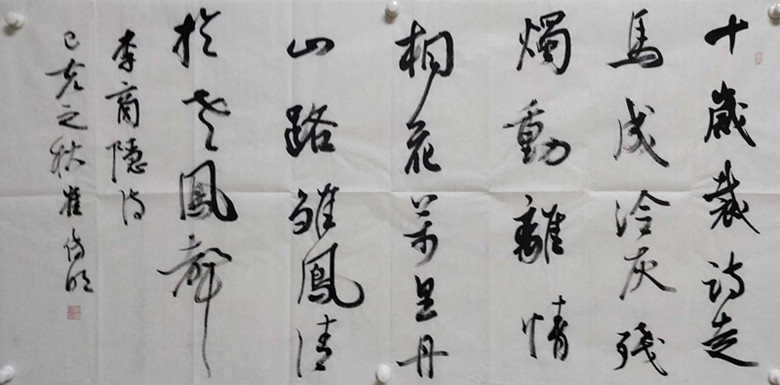 十歲裁詩走
馬成冷灰殘
燭動離情
桐花萬里丹
山路雏鳳清
於老鳳聲
李商隱詩
己亥之秋崔